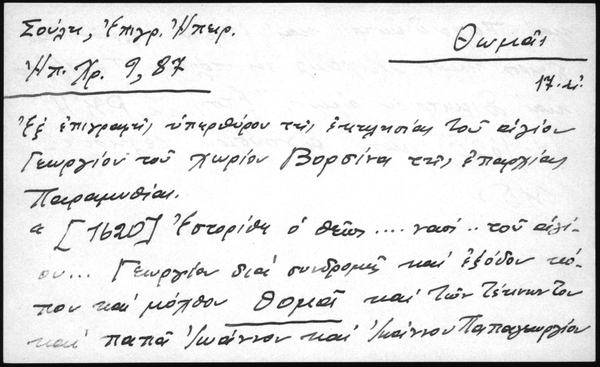 Σούλη, Ἐπιγρ. Ἠπειρ.
Θωμᾶς
Ἠπ. Χρ. 9, 87
17. αἰ.
Ἐξ ἐπιγραφῆς ὑπερθύρου τῆς ἐκκλησίας τοῦ ἁγίου
Γεωργίου τοῦ χωρίου Βορσίνα τῆς ἐπαρχίας
Παραμυθίας.
« [1620] Ἐστορίθη ὁ θεῖος .... νασί .. τοῦ ἁγί-
ου... Γεωργίου διὰ συνδρομῆς καὶ ἐξόδου κό-
που καὶ μόχθου Θομᾶ καὶ τῶν τέκνων του
καὶ παπᾶ Ἰωάννου καὶ Ἰωάννου Παπαγεωργίου